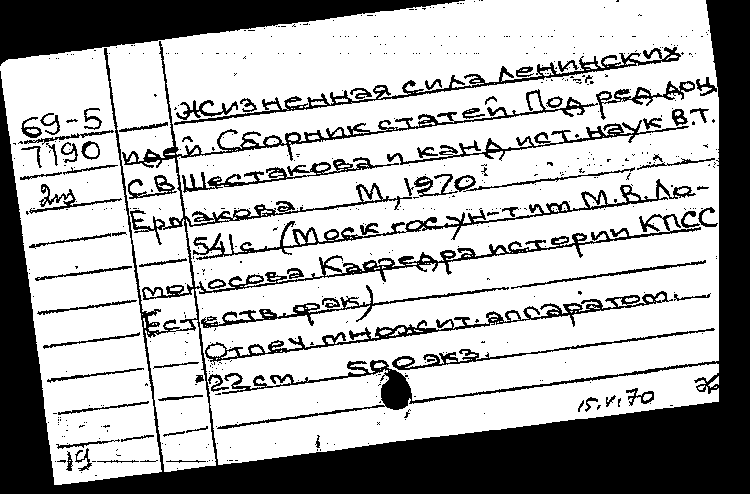 Жизненная сила ленинских
69-5
7190
идей. Сборник статей. Под ред. доц.
С.В. Шестакова и канд. ист. наук В.Т.
Ермакова. М., 1970.
541 с. (Моск. гос. ун-т им М.В. Ло-
моносова. Кафедра истории КПСС
Естеств. фак.)
Отпеч. множит. аппаратом.
22 см. 500 экз.
15.V.70
19